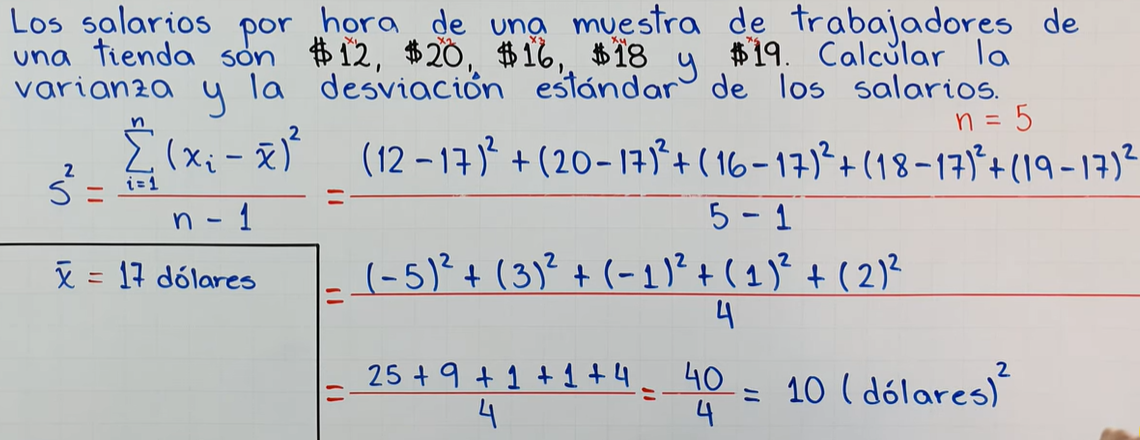 Los salarios por hora de una muestra de trabajadores de
x₁ x₂ x₃ x₄ x₅
una tienda son $12, $20, $16, $18 y $19. Calcular la
varianza y la desviación estándar de los salarios.
n = 5
s² = ∑ⁿᵢ₌₁ (xᵢ − x̄)² / n − 1 = (12 − 17)² + (20 − 17)² + (16 − 17)² + (18 − 17)² + (19 − 17)² / 5 − 1
x̄ = 17 dólares
= (−5)² + (3)² + (−1)² + (1)² + (2)² / 4
= 25 + 9 + 1 + 1 + 4 / 4 = 40 / 4 = 10 (dólares)²